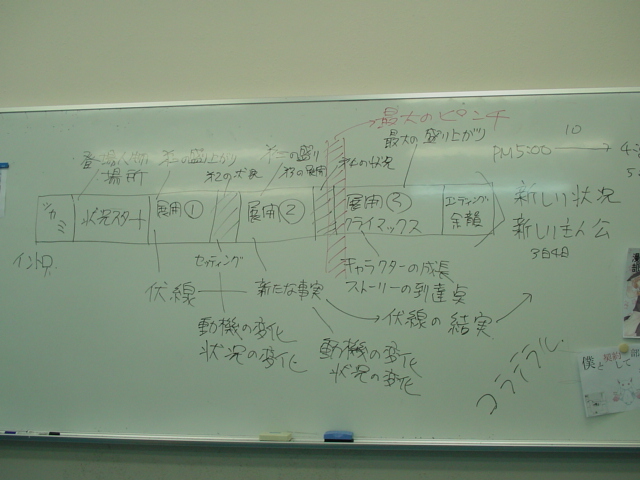 最大のピンチ
最大の盛り上がり
登場人物
場所
第一の盛り上がり
第2の状況
第二の盛り
第3の展開
第4の状況
PM5:00 → 4:
10
5:
ツカミ
状況スタート
展開①
展開②
展開③
クライマックス
エンディング
余韻
新しい状況
新しい主人公
3泊4日
イントロ
セッティング
キャラクターの成長
ストーリーの到達点
伏線
新たな事実
伏線の結実
動機の変化
状況の変化
動機の変化
状況の変化
僕と契約して